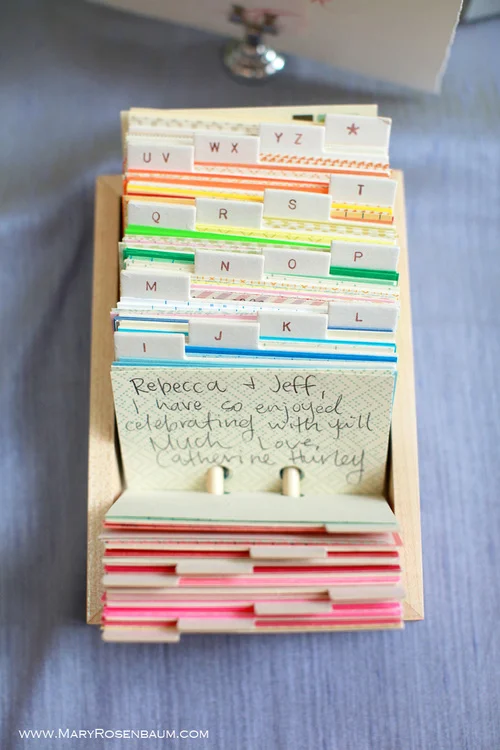 *
YZ
WX
UV
T
S
R
Q
P
O
N
M
L
K
J
I
Rebecca + Jeff,
I have so enjoyed
celebrating with y'all
Much Love,
Catherine Hurley
www.MaryRosenbaum.com